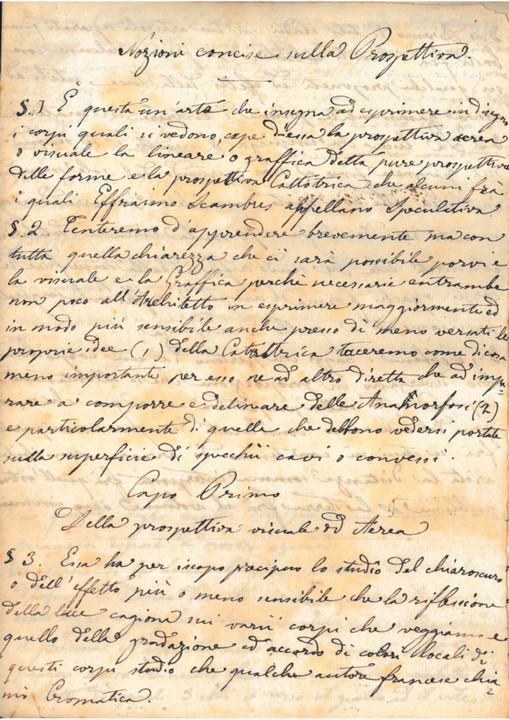 Nozioni concise sulla Prospettiva.
§. 1 È questa un'arte che insegna ad esprimere in disegno
i corpi quali si vedono, cape d'essa la prospettiva aerea
o visuale la lineare o graffica detta pure prospettiva
delle forme e la prospettiva Cattotrica che alcuni fra
i quali Effraimo Scambres appellano Speculativa
§. 2 Tenteremo d'apprendere brevemente ma con
tutta quella chiarezza che ci sarà possibile porvi e
la visuale e la Graffica perchè necessarie entrambe
non poco all'Architetto in esprimere maggiormente ed
in modo più sensibile anche presso di meno versati le
proprie idee (1) della Catottrica taceremo come di cosa
meno importanti per esso ne ad altro diretta che ad imp
rare a comporre e delineare delle Anamorfosi (2)
e particolarmente di quelle che debbono vedersi portate
sulla superficie di specchii cavi o convessi.
Capo Primo
Della prospettiva visuale od Aerea
§ 3. Essa ha per iscopo precipuo lo studio del chiaroscuro
o dell'effetto più o meno sensibile che la riflessione
della luce cagiona sui varii corpi che veggiamo e
quello della gradazione ed accordo di colori locali di
questi corpi studio che qualche autore francese chia
mò Cromatica.